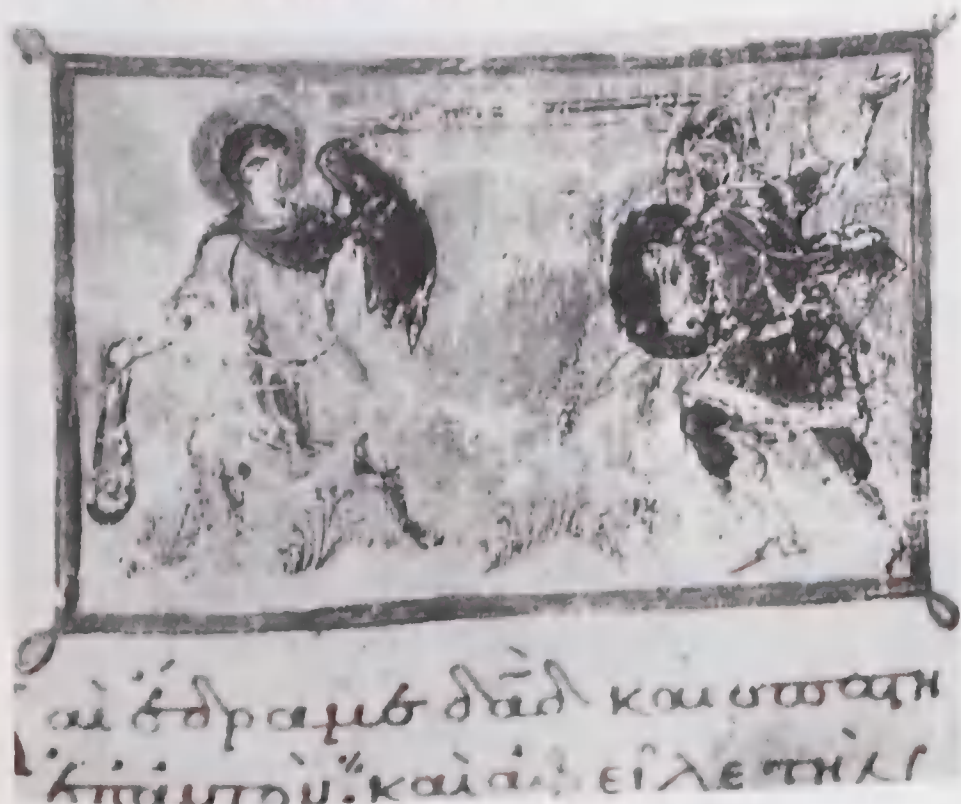 αὶ ἔδραμε δᾱδ και επεστη
ἐπ' αυτὸν. καὶ ἀφείλε τὴν